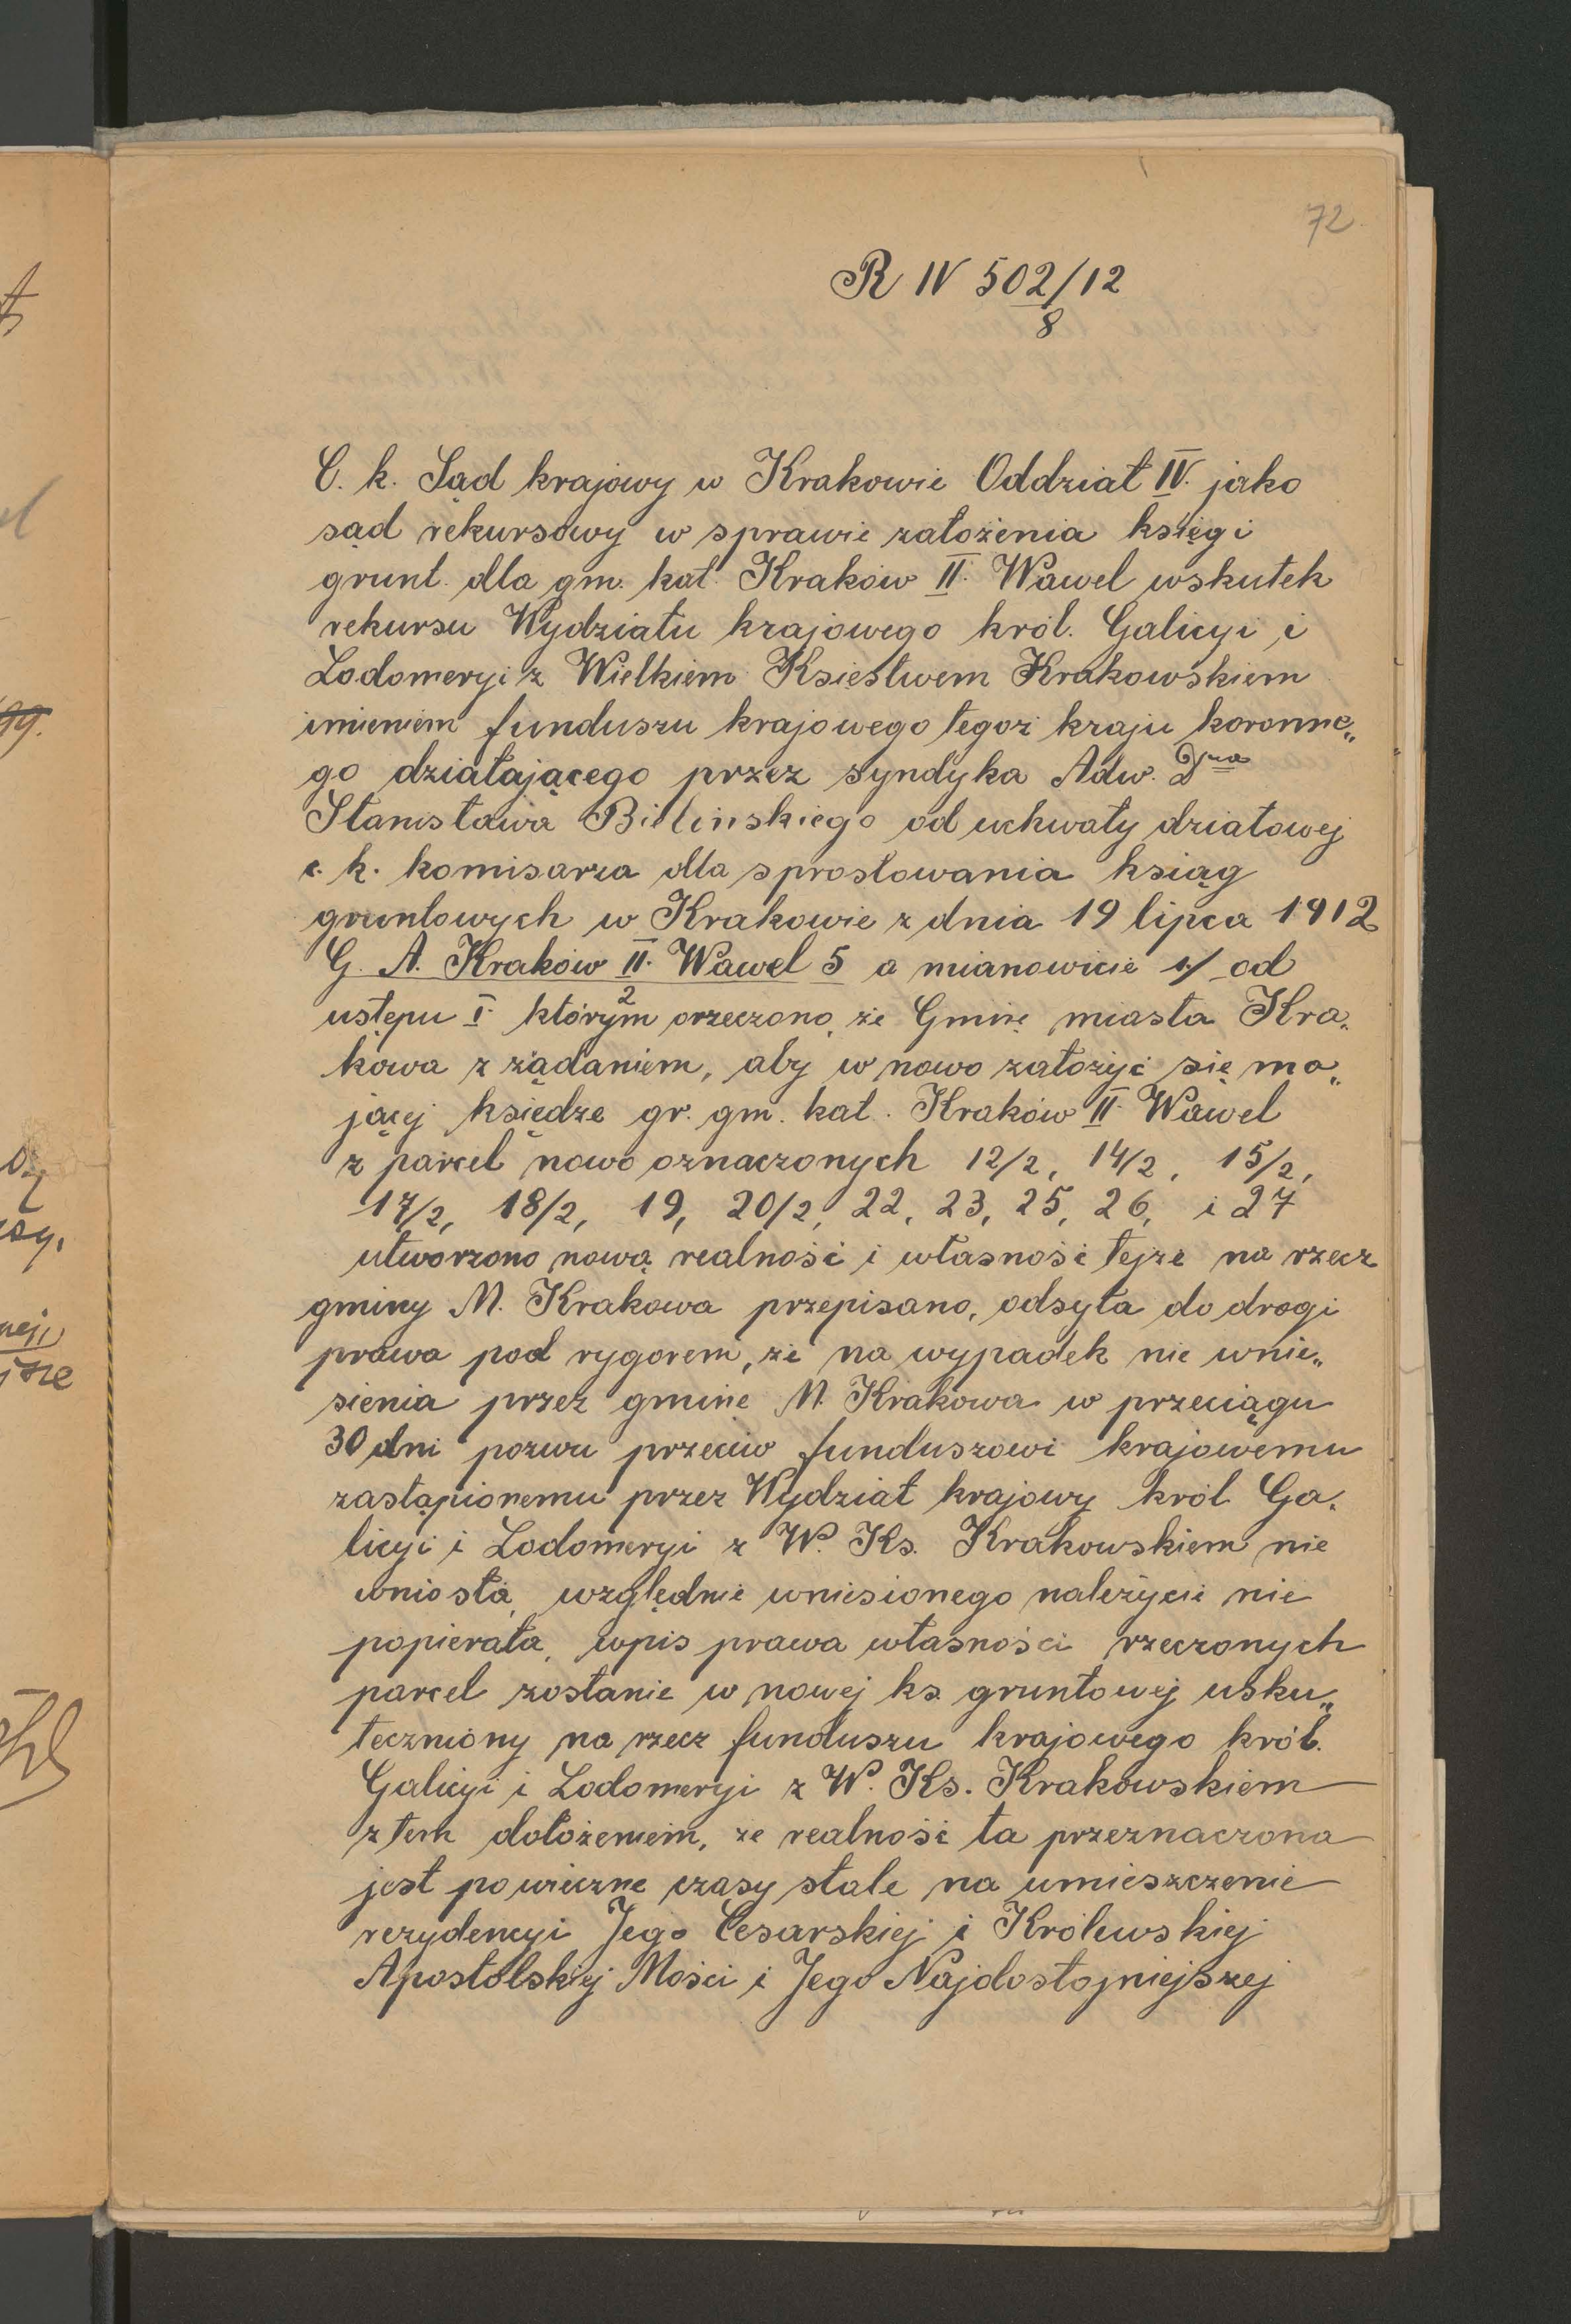 72
R IV 502/12
8
C. k. Sąd krajowy w Krakowie Oddział IV. jako
sąd rekursowy w sprawie założenia księgi
grunt. dla gm. kat. Kraków II. Wawel wskutek
rekursu Wydziału krajowego król. Galicyi i
Lodomeryi z Wielkiem Księstwem Krakowskiem
imieniem funduszu krajowego tegoż kraju koronne„
go działającego przez syndyka Adw. Dra
Stanisława Bielińskiego od uchwały działowej
c. k. komisarza dla sprostowania ksiąg
gruntowych w Krakowie z dnia 19 lipca 1912
G. A. Kraków II. Wawel 5 a mianowicie 1./ od
2
ustępu I. którym orzeczono, że Gminę miasta Kra„
kowa z żądaniem, aby w nowo założyć się ma„
jącej księdze gr. gm. kat. Kraków II. Wawel
z parcel nowo oznaczonych 12/2, 14/2, 15/2,
17/2, 18/2, 19, 20/2, 22, 23, 25, 26, i 27
utworzono nową realność i własność tejże na rzecz
gminy M. Krakowa przepisano, odsyła do drogi
prawa pod rygorem, że na wypadek nie wnie„
sienia przez gminę M. Krakowa w przeciągu
30 dni pozwu przeciw funduszowi krajowemu
zastąpionemu przez Wydział krajowy król. Ga„
licyi i Lodomeryi z W. Ks. Krakowskiem nie
wniosła, względnie wniesionego należycie nie
popierała, wpis prawa własności rzeczonych
parcel zostanie w nowej ks. gruntowej usku„
teczniony na rzecz funduszu krajowego król.
Galicyi i Lodomeryi z W. Ks. Krakowskiem
z tem dołożeniem, że realność ta przeznaczona
jest po wieczne czasy stale na umieszczenie
rezydencyi Jego Cesarskiej i Królewskiej
Apostolskiej Mości i Jego Najdostojniejszej